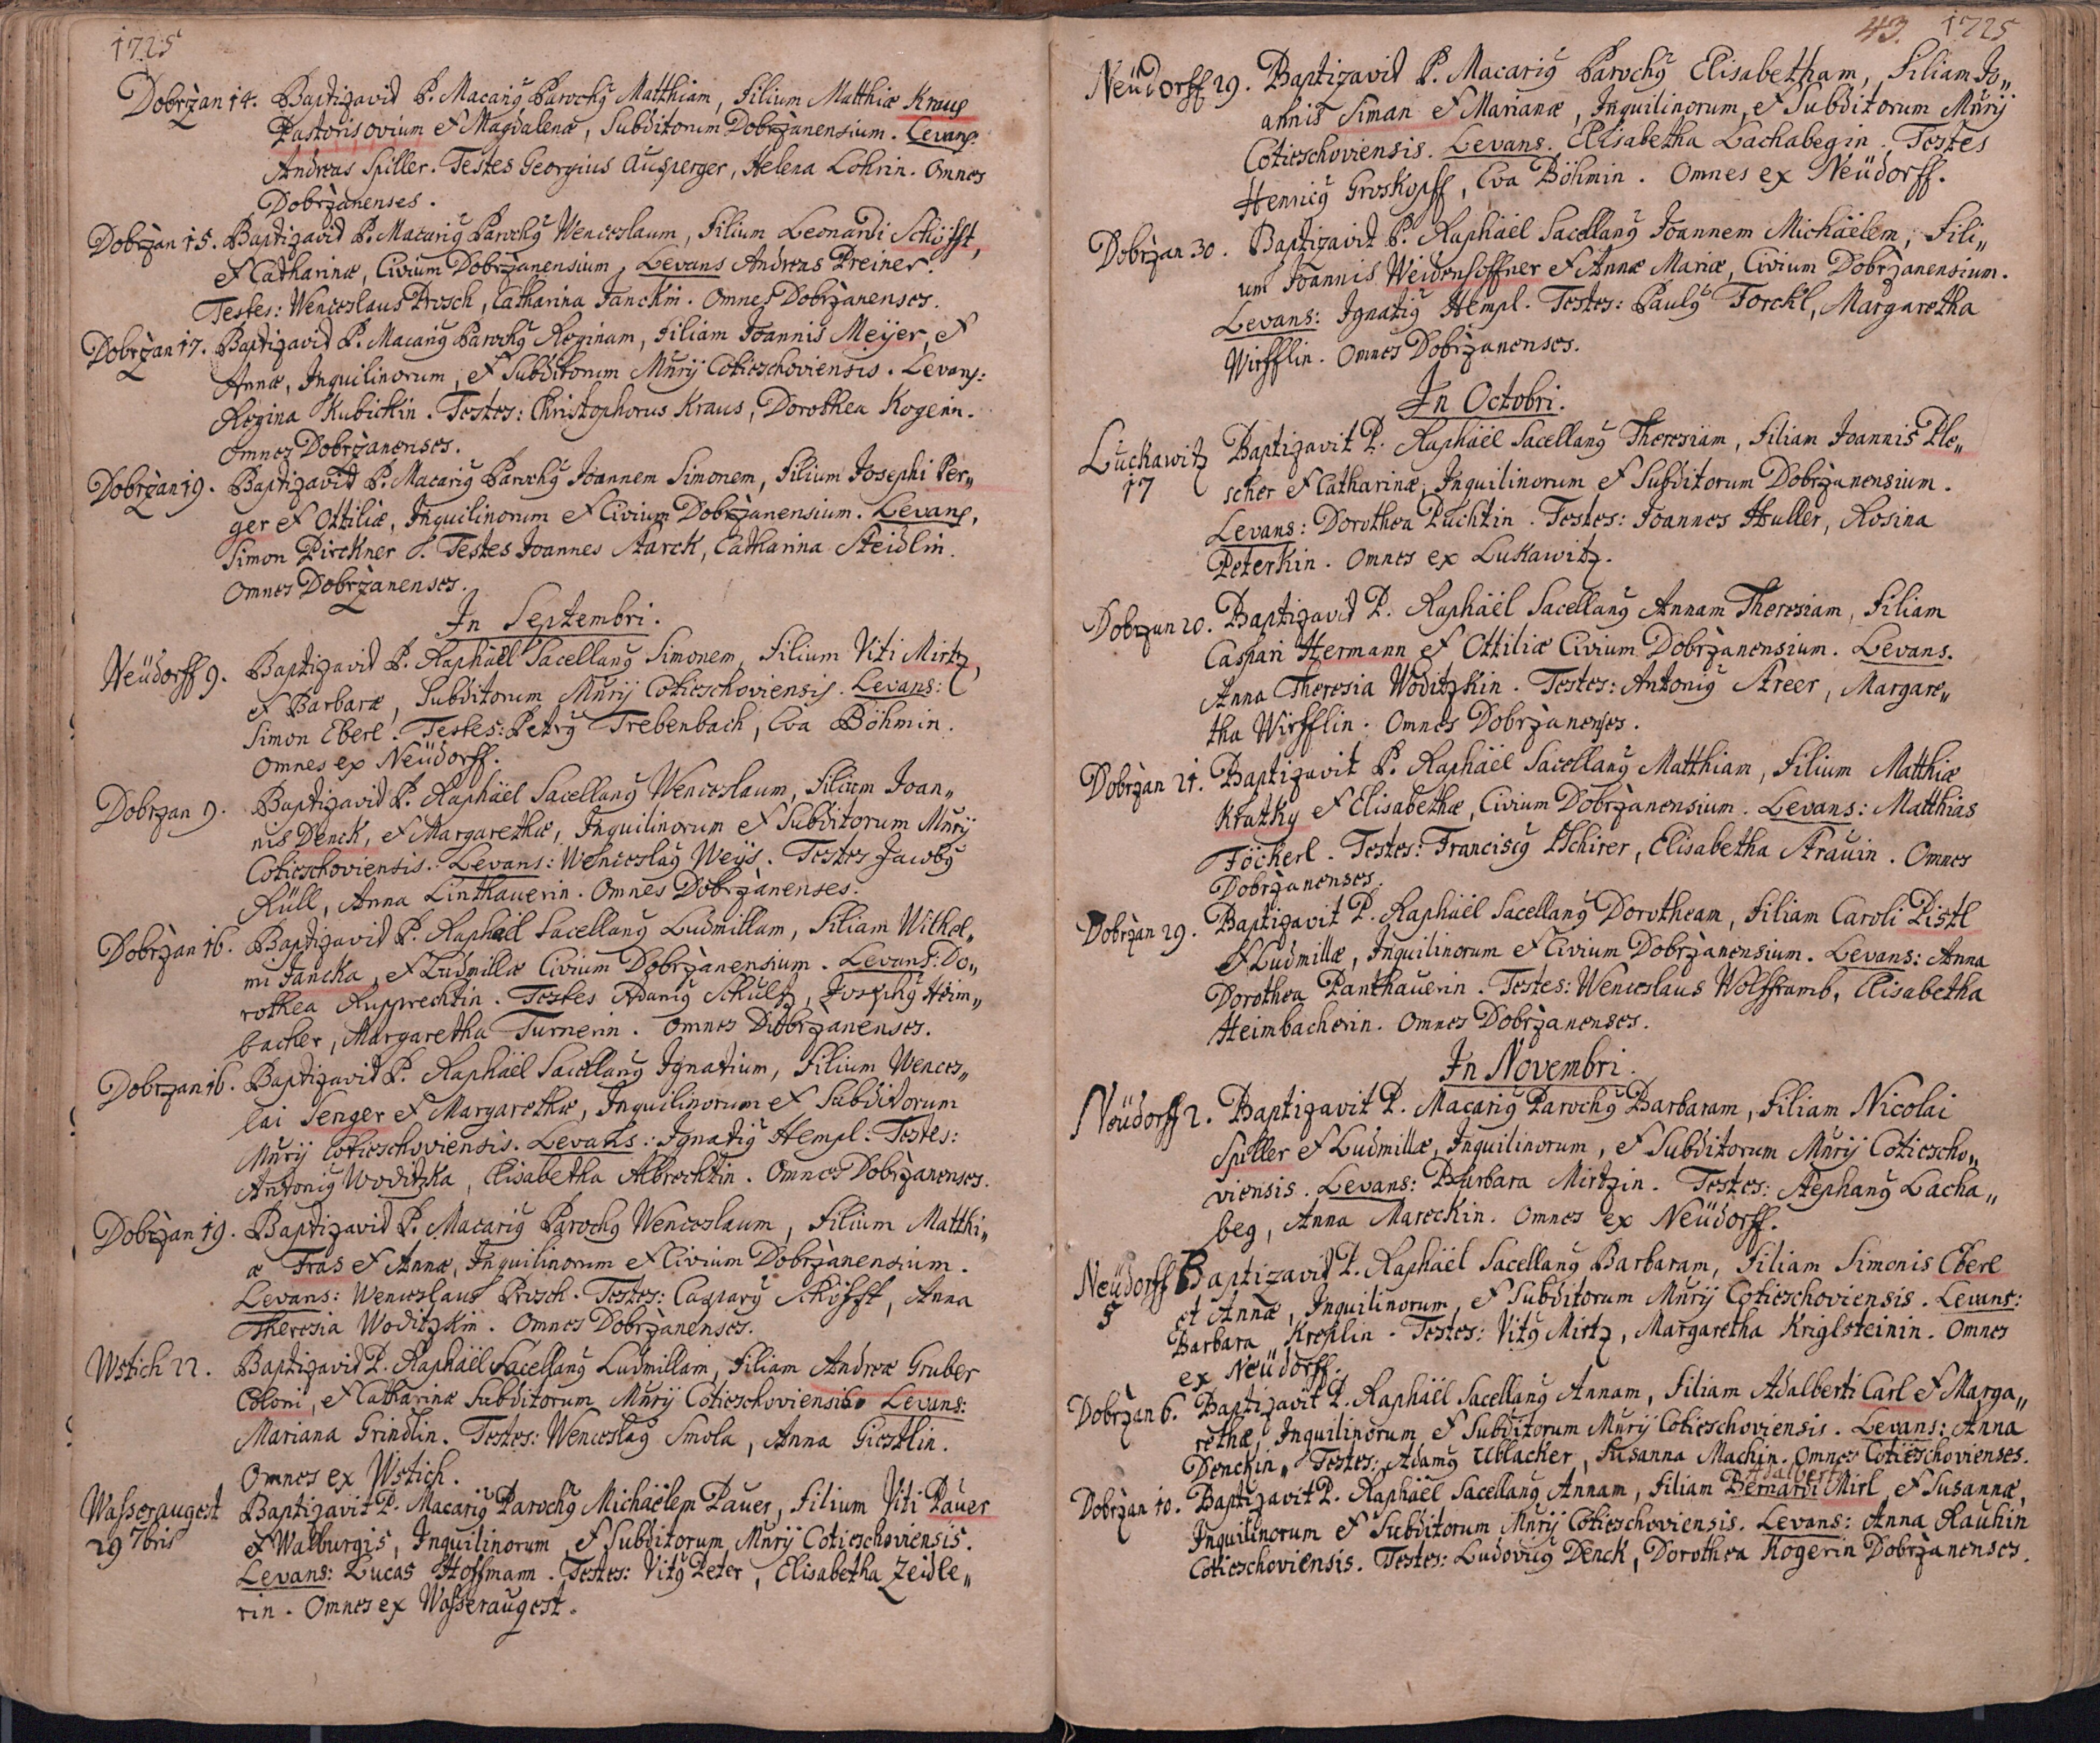 1725
Dobrzan 14. Baptizavit P. Macarius Parochus Matthiam, Filium Matthiæ Kraus
Pastoris ovium et Magdalenæ, Subditorum Dobrzanensium. Levans
Andreas Spiller. Testes Georgius Ausperger, Helena Lohrin. Omnes
Dobrzanenses.
Dobrzan 15. Baptizavit P. Macarius Parochus Wenceslaum, Filium Leonardi Schöfft,
et Catharinæ, Civium Dobrzanensium, Levans Andreas Preiner.
Testes: Wenceslaus Prosch, Catharina Janckin. Omnes Dobrzanenses.
Dobrzan 17. Baptizavit P. Macarius Parochus Reginam, Filiam Joannis Meijer, et
Annæ, Inquilinorum, et Subditorum Mnrij Cotieschoviensis. Levans:
Regina Kubickin. Testes: Christophorus Kraus, Dorothea Kogerin.
Omnes Dobrzanenses.
Dobrzan 19. Baptizavit P. Macarius Parochus Joannem Simonem, Filium Josephi Per„
ger et Ottiliæ, Inquilinorum et Civium Dobrzanensium. Levans,
Simon Pirckner. Testes Joannes Starck, Catharina Steidlin.
Omnes Dobrzanenses.
In Septembri.
Neüdorff 9. Baptizavit P. Raphäel Sacellanus Simonem, Filium Viti Mirtz,
et Barbaræ, Subditorum Mnrij Cotieschoviensis. Levans:
Simon Eberl. Testes: Petrus Trebenbach, Eva Böhmin.
Omnes ex Neüdorff.
Dobrzan 9. Baptizavit P. Raphäel Sacellanus Wenceslaum, Filium Joan„
nis Denck, et Margarethæ, Inquilinorum et Subditorum Mnrij
Cotieschoviensis. Levans: Wenceslaus Weijs. Testes Jacobus
Rüll, Anna Linthauerin. Omnes Dobrzanenses.
Dobrzan 16. Baptizavit P. Raphäel Sacellanus Ludmillam, Filiam Wilhel„
mi Jancka, et Ludmillæ Civium Dobrzanensium. Levans: Do„
rothea Rupprechtin. Testes Adamus Schultz, Josephus Heim„
bacher, Margaretha Turnerin. Omnes Dobrzanenses.
Dobrzan 16. Baptizavit P. Raphäel Sacellanus Ignatium, Filium Wences„
lai Senger et Margarethæ, Inquilinorum et Subditorum
Mnrij Cotieschoviensis. Levans: Ignatius Hempl: Testes:
Antonius Woditzka, Elisabetha Albrechtin. Omnes Dobrzanenses.
Dobrzan 19. Baptizavit P. Macarius Parochus Wenceslaum, Filium Matthi„
æ Fras et Annæ, Inquilinorum et Civium Dobrzanensium.
Levans: Wenceslaus Prosch. Testes: Casparus Schöfft, Anna
Theresia Woditzkin. Omnes Dobrzanenses.
Wstich 22. Baptizavit P. Raphäel Sacellanus Ludmillam, Filiam Andreæ Gruber
Coloni, et Catharinæ Subditorum Mnrij Cotieschoviensis. Levans:
Mariana Grindlin. Testes: Wenceslaus Smola, Anna Giestlin.
Omnes ex Wstich.
Wasseraugest Baptizavit P. Macarius Parochus Michäelem Pauer, Filium Viti Pauer
29 7bris et Walburgis, Inquilinorum, et Subditorum Mnrij Cotieschoviensis.
Levans: Lucas Hoffmann. Testes: Vitus Peter, Elisabetha Zeidle„
rin. Omnes ex Wasseraugest.
43. 1725
Neüdorff 29. Baptizavit P. Macarius Parochus Elisabetham, Filiam Jo„
annis Siman et Marianæ, Inquilinorum, et Subditorum Mnrij
Cotieschoviensis. Levans. Elisabetha Lachabegin. Testes
Henricus Groskopff, Eva Böhmin. Omnes ex Neüdorff.
Dobrzan 30. Baptizavit P. Raphäel Sacellanus Joannem Michäelem, Fili„
um Joannis Weidenhoffner et Annæ Mariæ, Civium Dobrzanensium.
Levans: Ignatius Hempl. Testes: Paulus Forckl, Margaretha
Wirfflin. Omnes Dobrzanenses.
In Octobri.
Luckawitz Baptizavit P. Raphäel Sacellanus Theresiam, Filiam Joannis Ple„
17 scher et Catharinæ, Inquilinorum et Subditorum Dobrzanensium.
Levans: Dorothea Puchtin. Testes: Joannes Huller, Rosina
Peterkin. Omnes ex Lukawitz.
Dobrzan 20. Baptizavit P. Raphäel Sacellanus Annam Theresiam, Filiam
Caspari Hermann et Ottiliæ Civium Dobrzanensium. Levans.
Anna Theresia Woditzkin. Testes: Antonius Streer, Margare„
tha Wirfflin. Omnes Dobrzanenses.
Dobrzan 21. Baptizavit P. Raphäel Sacellanus Matthiam, Filium Matthiæ
Kratky et Elisabethæ, Civium Dobrzanensium. Levans: Matthias
Föckerl. Testes: Franciscus Tschirer, Elisabetha Strauin. Omnes
Dobrzanenses.
Dobrzan 29. Baptizavit P. Raphäel Sacellanus Dorotheam, Filiam Caroli Pistl
et Ludmillæ, Inquilinorum et Civium Dobrzanensium. Levans: Anna
Dorothea Panthauerin. Testes: Wenceslaus Wolfframb, Elisabetha
Heimbacherin. Omnes Dobrzanenses.
In Novembri.
Neüdorff 2. Baptizavit P. Macarius Parochus Barbaram, Filiam Nicolai
Spiller et Ludmillæ, Inquilinorum, et Subditorum Mnrij Cotiescho„
viensis. Levans: Barbara Mirtzin. Testes: Stephanus Lacha„
beg, Anna Mareckin. Omnes ex Neüdorff.
Neüdorff Baptizavit P. Raphäel Sacellanus Barbaram, Filiam Simonis Eberl
5 et Annæ, Inquilinorum, et Subditorum Mnrij Cotieschoviensis. Levans:
Barbara Kreklin. Testes: Vitus Mirtz, Margaretha Kriglsteinin. Omnes
ex Neüdorff.
Dobrzan 6. Baptizavit P. Raphäel Sacellanus Annam, Filiam Adalberti Carl et Marga„
rethæ, Inquilinorum et Subditorum Mnrij Cotieschoviensis. Levans: Anna
Denckin„ Testes: Adamus Ublacker, Susanna Machin. Omnes Cotieschovienses.
Adalberti
Dobrzan 10. Baptizavit P. Raphäel Sacellanus Annam, Filiam Bernardi Mirl et Susannæ,
Inquilinorum et Subditorum Mnrij Cotieschoviensis. Levans: Anna Rauhin
Cotieschoviensis. Testes: Ludovicus Denck, Dorothea Kogerin Dobrzanenses.